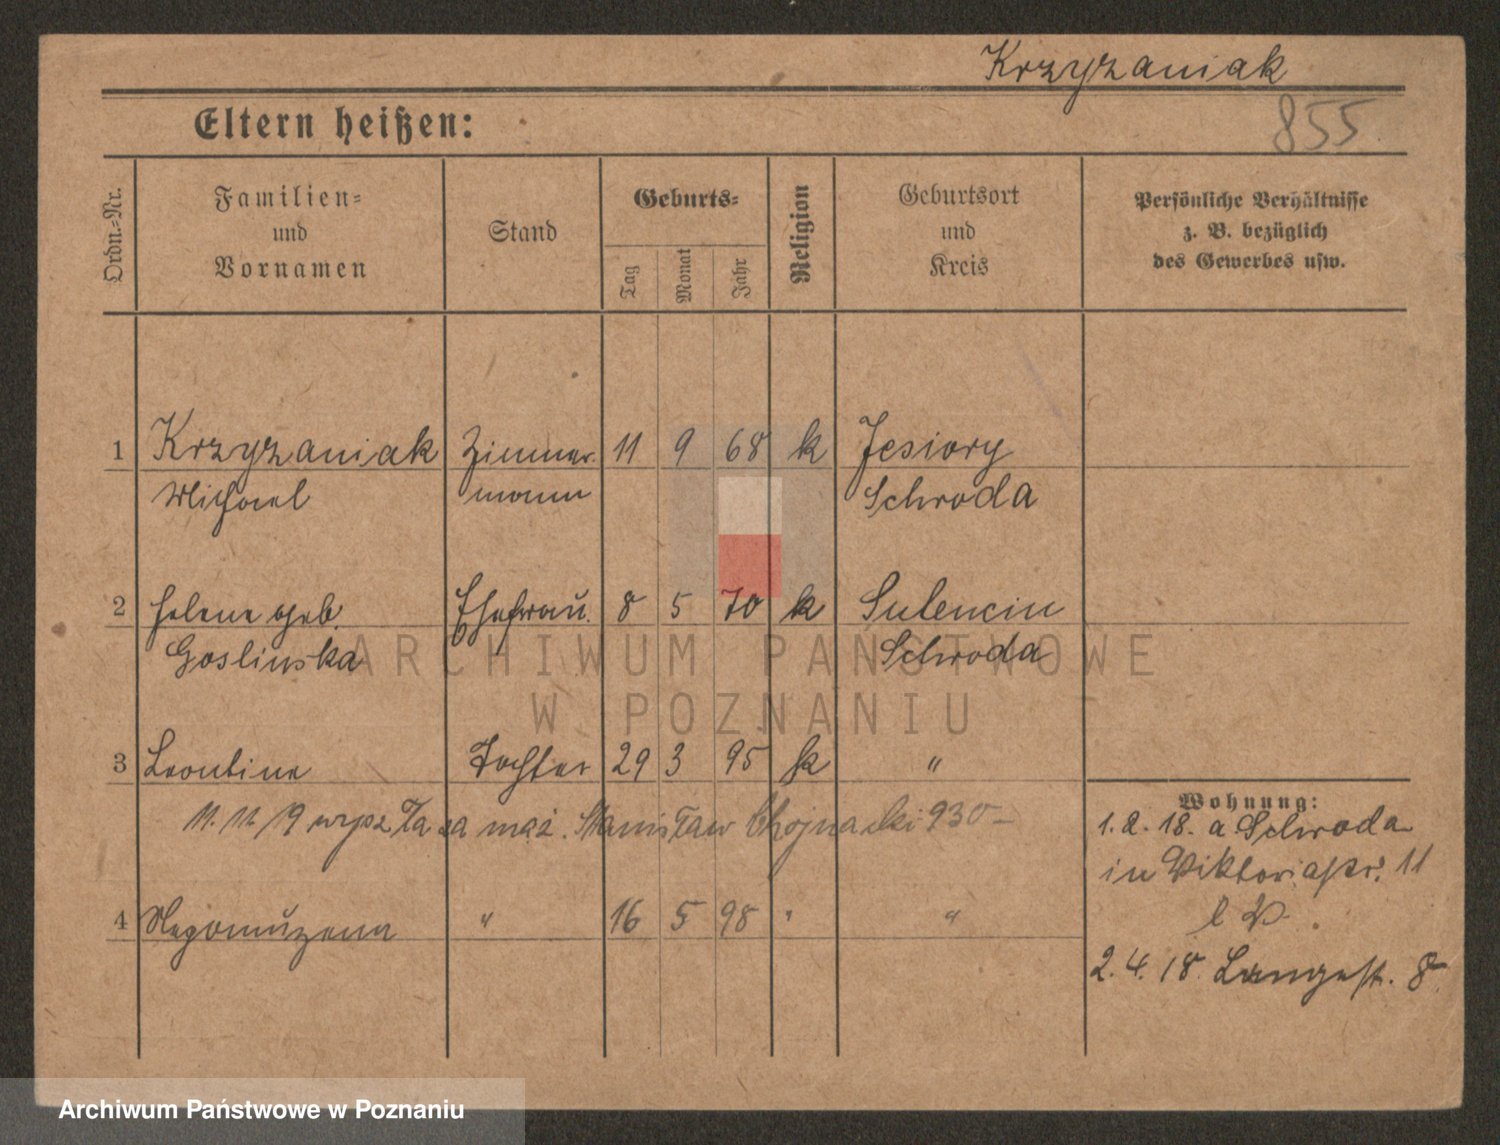 Krzyzaniak
855
Eltern heißen:
Ordn.-Nr.
Familien-
und
Vornamen
Stand
Geburts-
Tag
Monat
Jahr
Religion
Geburtsort
und
Kreis
Persönliche Verhältnisse
z. B. bezüglich
des Gewerbes usw.
1 Krzyzaniak Zimmer 11 9 68 k Jesiory
Michael mann Schroda
2 Helene geb. Ehefrau. 8 5 70 k Sulencin
Goslinska Schroda
ARCHIWUM PAŃSTWOWE
W POZNANIU
3 Leontine Tochter 29 3 95 k "
11. 11. 19 wysz za mąż. Stanisław Chojnacki 930
4 Nepomuzena " 16 5 98 " "
Wohnung:
1. 2. 18. a Schroda
in Viktoriastr. 11
2. 4. 18. Langest. 8.
Archiwum Państwowe w Poznaniu